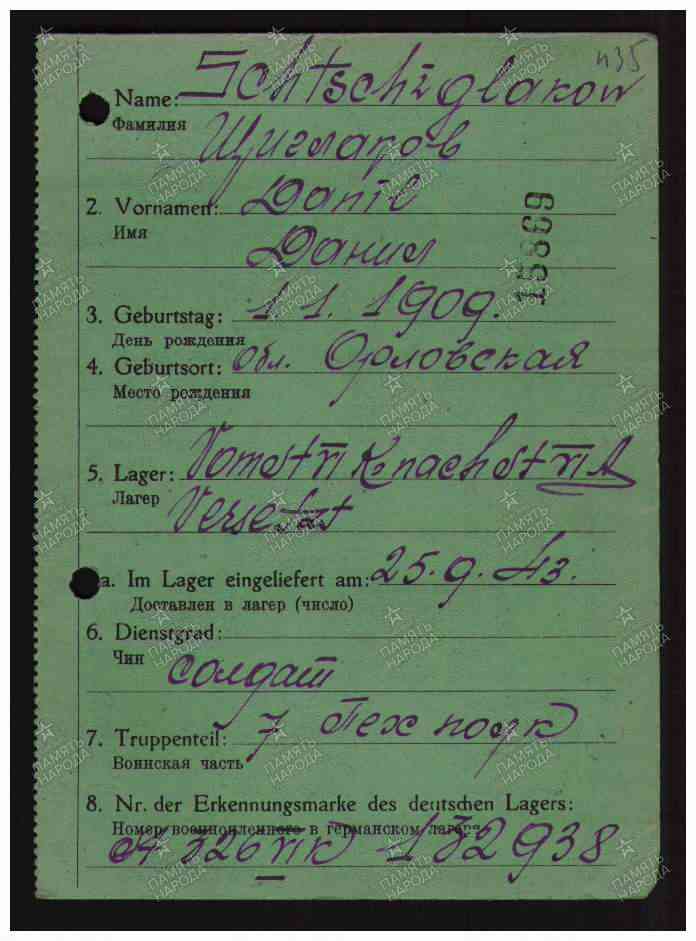 435
Name: Schtschiglakow
Фамилия
Щиглаков
2. Vornamen: Danil
Имя
Данил
15869
3. Geburtstag: 1. 1. 1909.
День рождения
4. Geburtsort: Обл. Орловская
Место рождения
5. Lager: Vom St VI K nach St VI A
Лагер
Versetzt
a. Im Lager eingeliefert am: 25. 9. 43.
Доставлен в лагер (число)
6. Dienstgrad:
Чин солдат
7. Truppenteil: 7 Тех полк
Воинская часть
8. Nr. der Erkennungsmarke des deutschen Lagers:
Номер военнопленного в германском лагере
326 VI K 132938
ПАМЯТЬ НАРОДА